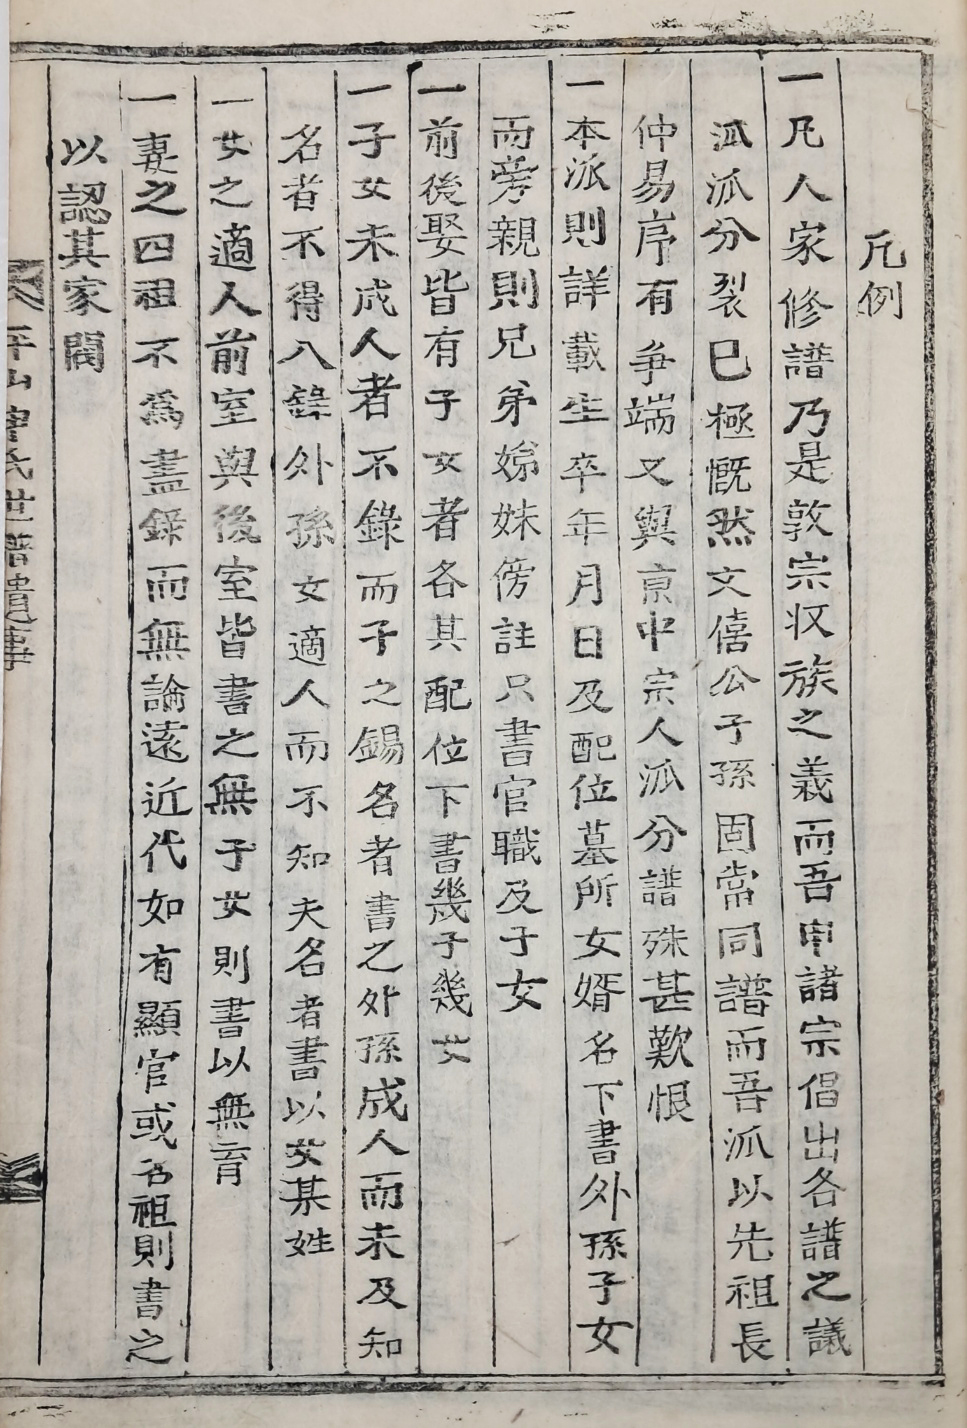 凡例
一凡人家修譜乃是敦宗収族之義而吾申諸宗倡出各譜之議
派派分裂已極慨然文僖公子孫固當同譜而吾派以先祖長
仲易序有爭端又與京中宗人派分譜殊甚歎恨
一本派則詳載生卒年月日及配位墓所女婿名下書外孫子女
而旁親則兄弟娣妹傍註只書官職及子女
一前後娶皆有子女者各其配位下書幾子幾女
一子女未成人者不錄而子之錫名者書之外孫成人而未及知
名者不得入錄外孫女適人而不知夫名者書以女某姓
一女之適人前室與後室皆書之無子女則書以無育
一妻之四祖不為盡錄而無論遠近代如有顯官或名祖則書之
以認其家閥
平山申氏世譜遺事